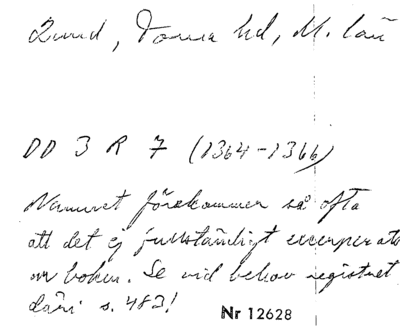 Lund, Torna hd, M. län
DD 3 R 7 (1364-1366)
Namnet förekommer så ofta
att det ej fullständigt excerperats
ur boken. Se vid behov registret
däri s. 483!
Nr 12628